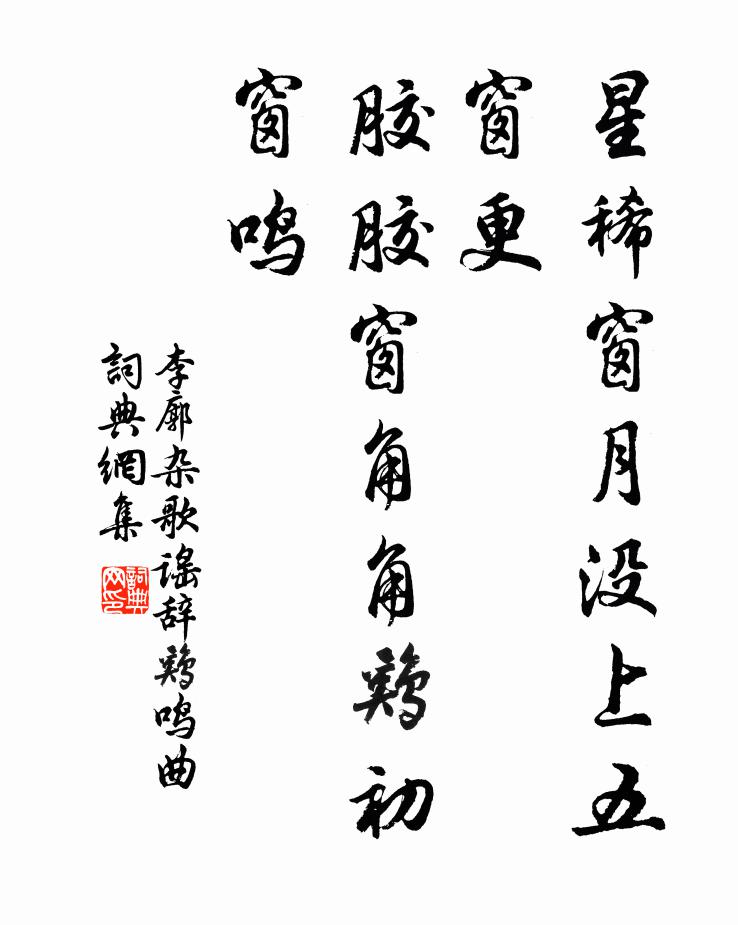 星稀窗月没上五
窗更
胶胶窗角角鸡初
窗鸣
李廓杂歌谣辞鸡鸣曲
詞典網集
詞典
网印